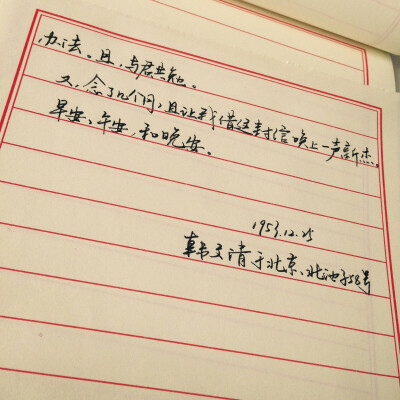 办法。且,与君共勉。
又,念了几个月,且让我借这封信唤上一声新杰。
早安、午安,和晚安。
1953.12.25
韩文清于北京、北池子58号